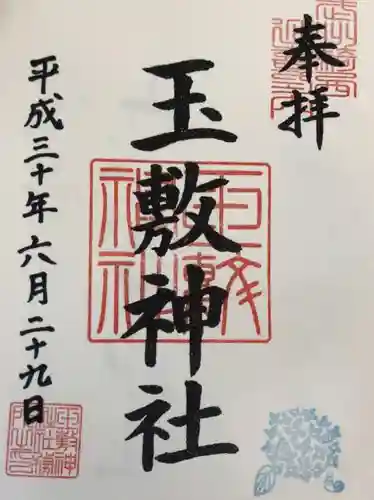 奉拝
玉敷神社
平成三十年六月二十九日